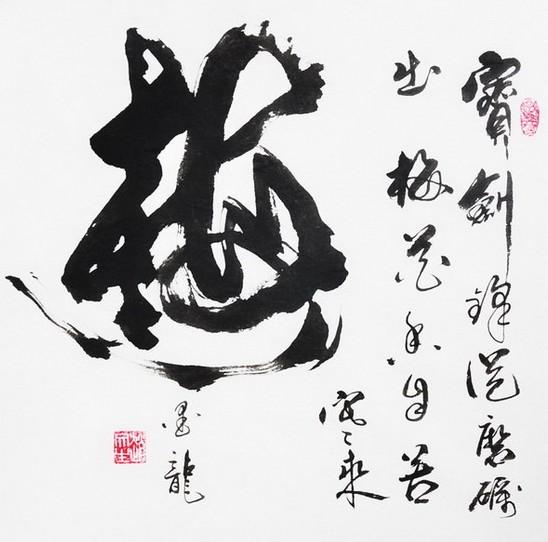 寶劍鋒從磨礪
出梅花香自苦
寒來
墨龍